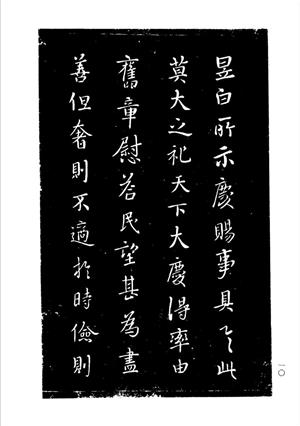 昱白所示慶賜事具之此
莫大之祀天下大慶得率由
舊章慰荅民望甚為盡
善但奢則不適於時儉則
一〇